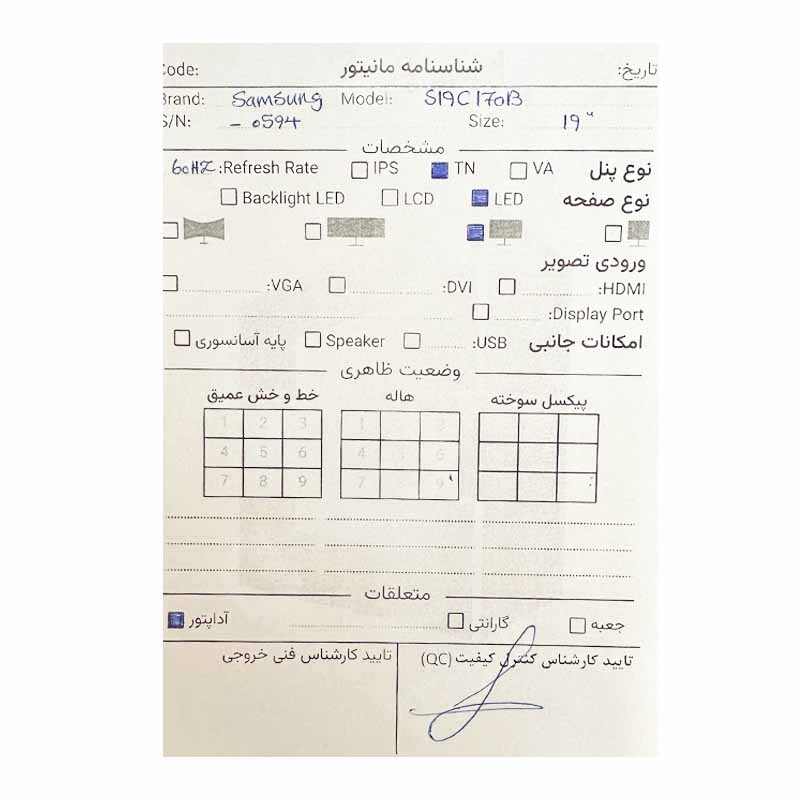 تاریخ: شناسنامه مانیتور Code:
Brand: Samsung Model: S19C170B
S/N: - 0594 Size: 19"
مشخصات
نوع پنل VA TN IPS Refresh Rate: 60HZ
نوع صفحه LED LCD Backlight LED
ورودی تصویر
HDMI: DVI: VGA:
Display Port:
امکانات جانبی USB: Speaker پایه آسانسوری
وضعیت ظاهری
پیکسل سوخته هاله خط و خش عمیق
1 1 2 3
4 6 4 5 6
7 9 7 8 9
متعلقات
جعبه گارانتی آداپتور
تایید کارشناس کنترل کیفیت (QC) تایید کارشناس فنی خروجی